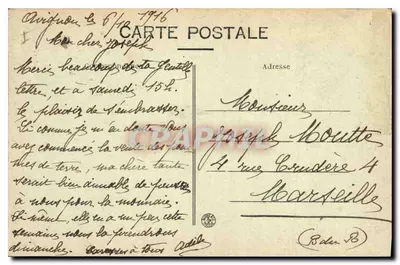 Avignon le 6/12 1916
CARTE POSTALE
Mon cher Joseph
Adresse
Merci beaucoup de ta gentille
lettre, et à samedi 15h.
le plaisir de t'embrasser.
Si comme je m'en doute vous
avez commencé la vente des pom
mes de terre, ma chère tante
serait bien aimable de penser
à nous pour la monnaie.
Si même, elle en a un peu cette
semaine nous la prendrons
dimanche. à tous Adèle
Monsieur
Joseph Moutte
4 rue Crudère 4
Marseille
(B du R)